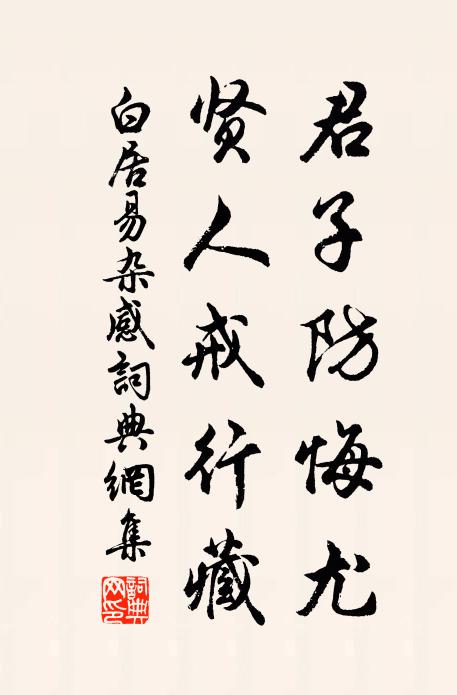 君子防悔尤
贤人戒行藏
白居易杂感詞典網集
詞典网印